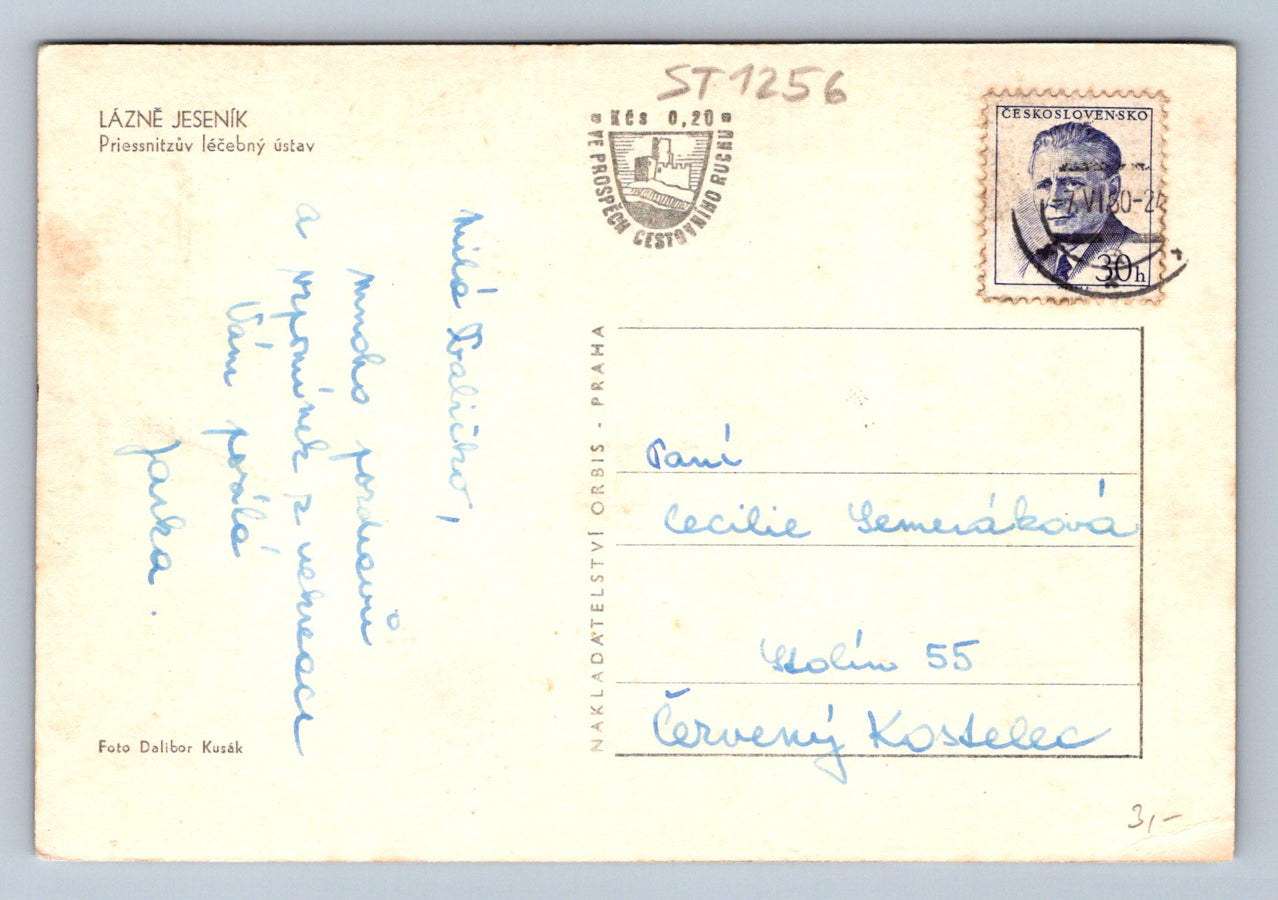 ST. 1256
LÁZNĚ JESENÍK
Priessnitzův léčebný ústav
Kčs 0,20
VE PROSPĚCH CESTOVNÍHO RUCHU
ČESKOSLOVENSKO
30h
-7.VI.60-24
Milá
mnoho pozdravů
a vzpomínek z rekreace
Vám posílá
Jarka.
NAKLADATELSTVÍ ORBIS - PRAHA
Paní
Cecilie Semeráková
Stolín 55
Červený Kostelec
Foto Dalibor Kusák
3,-